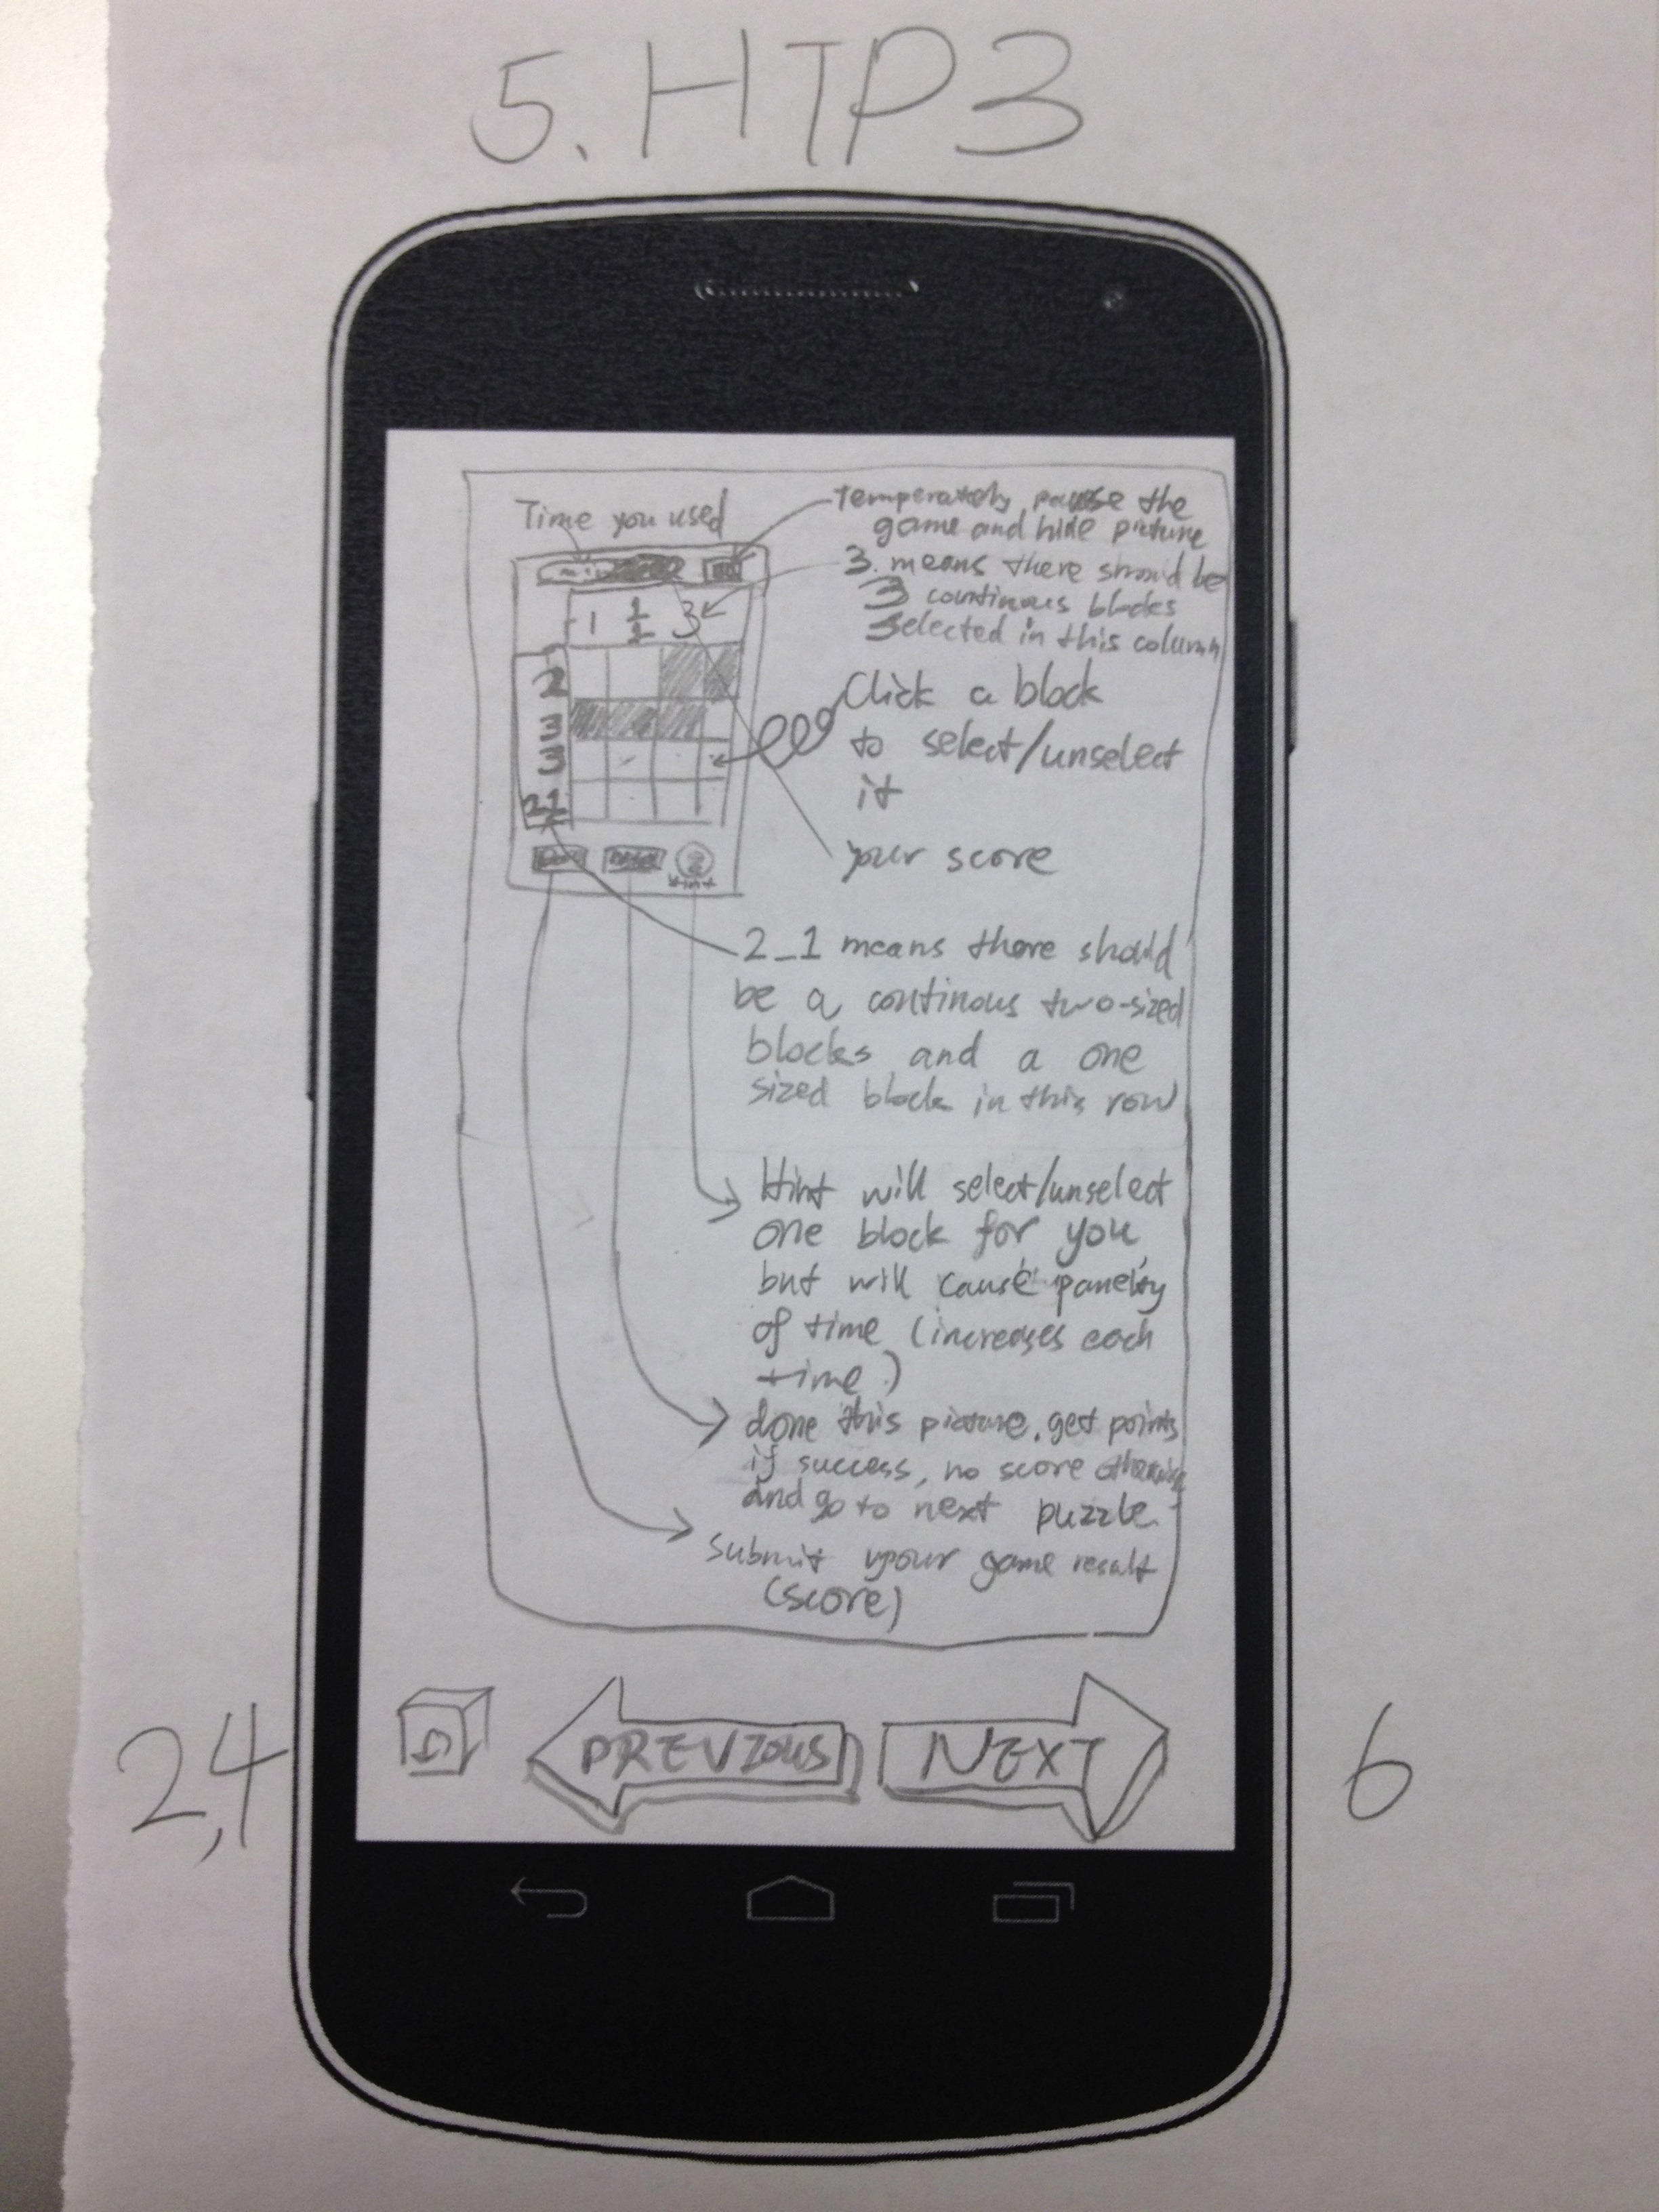 5. HTP3
Time you used
Temperately pause the
game and hide picture
3 means there should be
3 continous blocks
selected in this column
1 1 3
1
2
3
3
21
Click a block
to select/unselect
it
your score
2_1 means there should
be a continous two-sized
blocks and a one
sized block in this row
Hint will select/unselect
one block for you
but will cause panelty
of time (increases each
time)
done this picture. get points
if success, no score otherwise
and go to next puzzle.
submit your game result
(score)
PREVIOUS NEXT
2,4
6